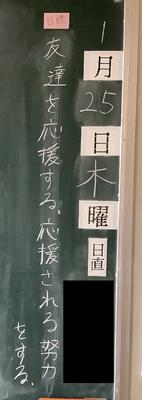 1月25日木曜
日直
目標
友達を応援する、応援される努力
をする。